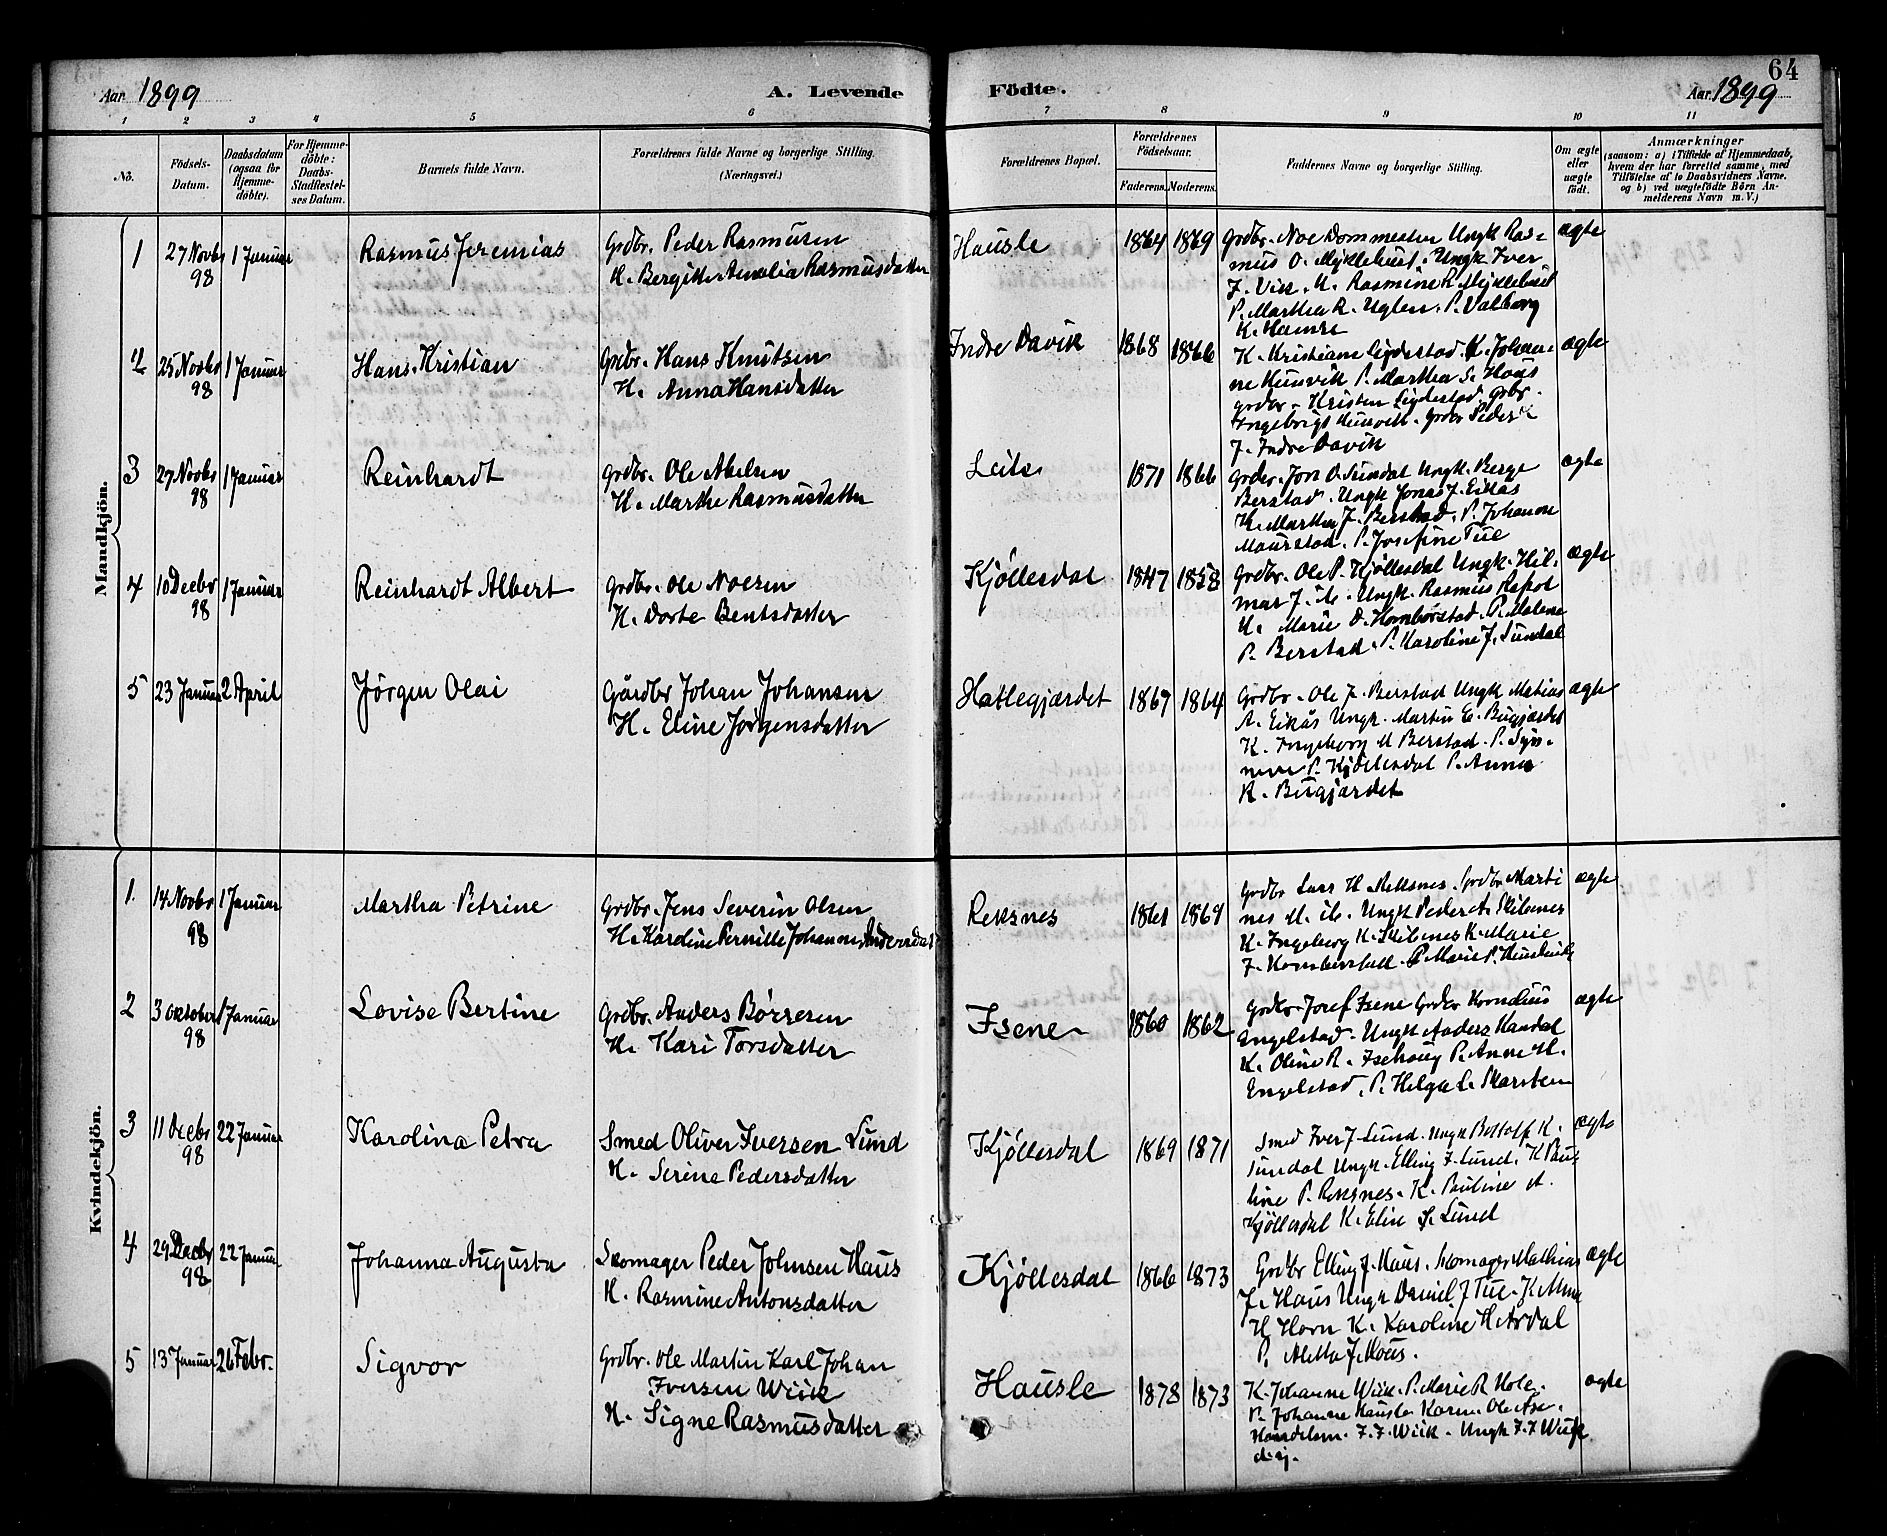 64
Aar 1899
A. Levende
Födte.
Aar 1899
1 2 3 4 5 6 7 8 9 10 11
No.
Födsels-
Datum.
Daabsdatum
(ogsaa for
Hjemme-
döbte).
For Hjemme-
döbte:
Daabs-
Stadfæstel-
ses Datum.
Barnets fulde Navn.
Forældrenes fulde Navne og borgerlige Stilling.
(Næringsvei.)
Forældrenes Bopæl.
Forældrenes
Födselsaar.
Faderens. Moderens.
Faddernes Navne og borgerlige Stilling.
Om ægte
eller
uægte
födt.
Anmærkninger
(saasom: a) i Tilfælde af Hjemmedaab,
hvem der har forrettet samme, med
Tilföielse af to Daabsvidners Navne,
og b) ved uægtefödte Börn An-
melderens Navn m. V.)
Mandkjön.
1
27 Novbr
98
1 Januar
Rasmus Jeremias
Grdbr. Peder Rasmusen
H. Bergitte Amalia Rasmusdatter
Hausle
1864 1869
Grdbr. Noe Dommesten Ungk Ras-
mus O. Myklebust. Ungk Iver
J. Vik. K. Rasmine R. Myklebust
P. Martha R. Uglen. P. Valborg
K. Hamre
ægte
2
25 Novbr
98
1 Januar
Hans Kristian
Grdbr. Hans Knutsen
H. Anna Hansdatter
Indre Davik
1868 1866
K. Kristiane Sigdestad K. Johan-
ne P. Martha S. Haus
grdbr. Kristen Sigdestad grbr.
Ingebrigt grdbr Peder
J. Indre Davik
ægte
3
27 Novbr
98
1 Januar
Reinhardt
Grdbr. Ole Abelsen
H. Marthe Rasmusdatter
Leite
1871 1866
Grdbr. Jon O. Sundal Ungk. Berge
Berstad. Ungk Jonas J. Eikås
K. Martha J. Berstad. P. Johanne
Maurstad. P. Josefine Tue
ægte
4
10 Decbr
98
1 Januar
Reinhardt Albert
Grdbr. Ole Noesen
H. Dorte Bentsdatter
Kjöllesdal
1847 1858
Grdbr. Ole P. Kjöllesdal Ungk. Hil-
mar J. ib. Ungk. Rasmus
K. Marie O. Hombörstad P. Malene
P. Berstad. P. Karoline J. Sundal
ægte
5
23 Januar
2 April
Jörgen Olai
Gårdbr Johan Johansen
H. Eline Jörgensdatter
Hatlegjærdet
1867 1864
Grdbr. Ole J. Berstad Ungk Matias
A. Eikås Ungk. Martin E. Bugjærdet
K. Ingeborg M Berstad. P. Syn-
neve P. Kjöllesdal P. Anna
R. Bugjærdet
ægte
Kvindekjön.
1.
14 Novbr
98
1 Januar
Martha Petrine
Grdbr. Jens Severin Olsen
H. Karoline Pernille Johanne Andersdatr
Reksnes
1861 1869
Grdbr Lars H Reksnes. Grdbr Marti
nes M. ib. Ungk Peder A. Skibenes
K. Ingeborg K. Skibenes K. Marie
P. Marie P.
ægte
2
3 Oktober
98
1 Januar
Lovise Bertine
Grdbr. Anders Börresen
H. Kari Torsdatter
Isene
1860 1862
Grdbr. Josef Isene Grdbr Kornelius
Engelstad. Ungk Anders Kandal
K. Oline R. Isehaug P. Anne H.
Engelstad. P. Helga L. Skarsten
ægte
3
11 Decbr
98
22 Januar
Karolina Petra
Smed Oliver Iversen Lund
H. Serine Pedersdatter
Kjöllesdal
1869 1871
Smed Iver J. Lund. Ungk Bottolf K.
Sundal Ungk. Elling J. Lund. K Pau-
line P. Reksnes. K. Pauline A.
Kjöllesdal K. Elin S. Lund
ægte
4
29 Decbr
98
22 Januar
Johanna Augusta
Skomager Peder Johnsen Haus
H. Rasmine Antonsdatter
Kjöllesdal
1866 1873
Grdbr Elling J. Haus. Skomager Mathias
J. Haus Ungk Daniel J Tue. K.
H Horn K. Karoline H. Årdal
P. Aletta J. Haus.
ægte
5
13 Januar
26 Febr.
Sigvor
Grdbr. Ole Martin Karl Johan
Iversen Wiik
H. Signe Rasmusdatter
Hausle
1878 1873
K. Johanne Wiik. P. Marie R Hole.
P. Johanne Hausle Ole Åse.
Handelsm. I. J. Wiik. Ungk J. J Wiik
ægte